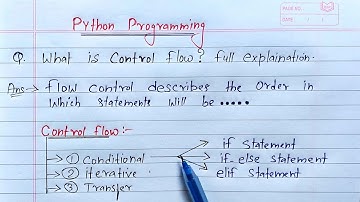 PAGE NO.
DATE
Python Programming
Q. What is Control flow? full explaination.
Ans → flow control describes the Order in
Which statements will be .....
Control flow:-
→ ① Conditional → if Statement
→ ② iterative → if-else statement
→ ③ Transfer → elif Statement